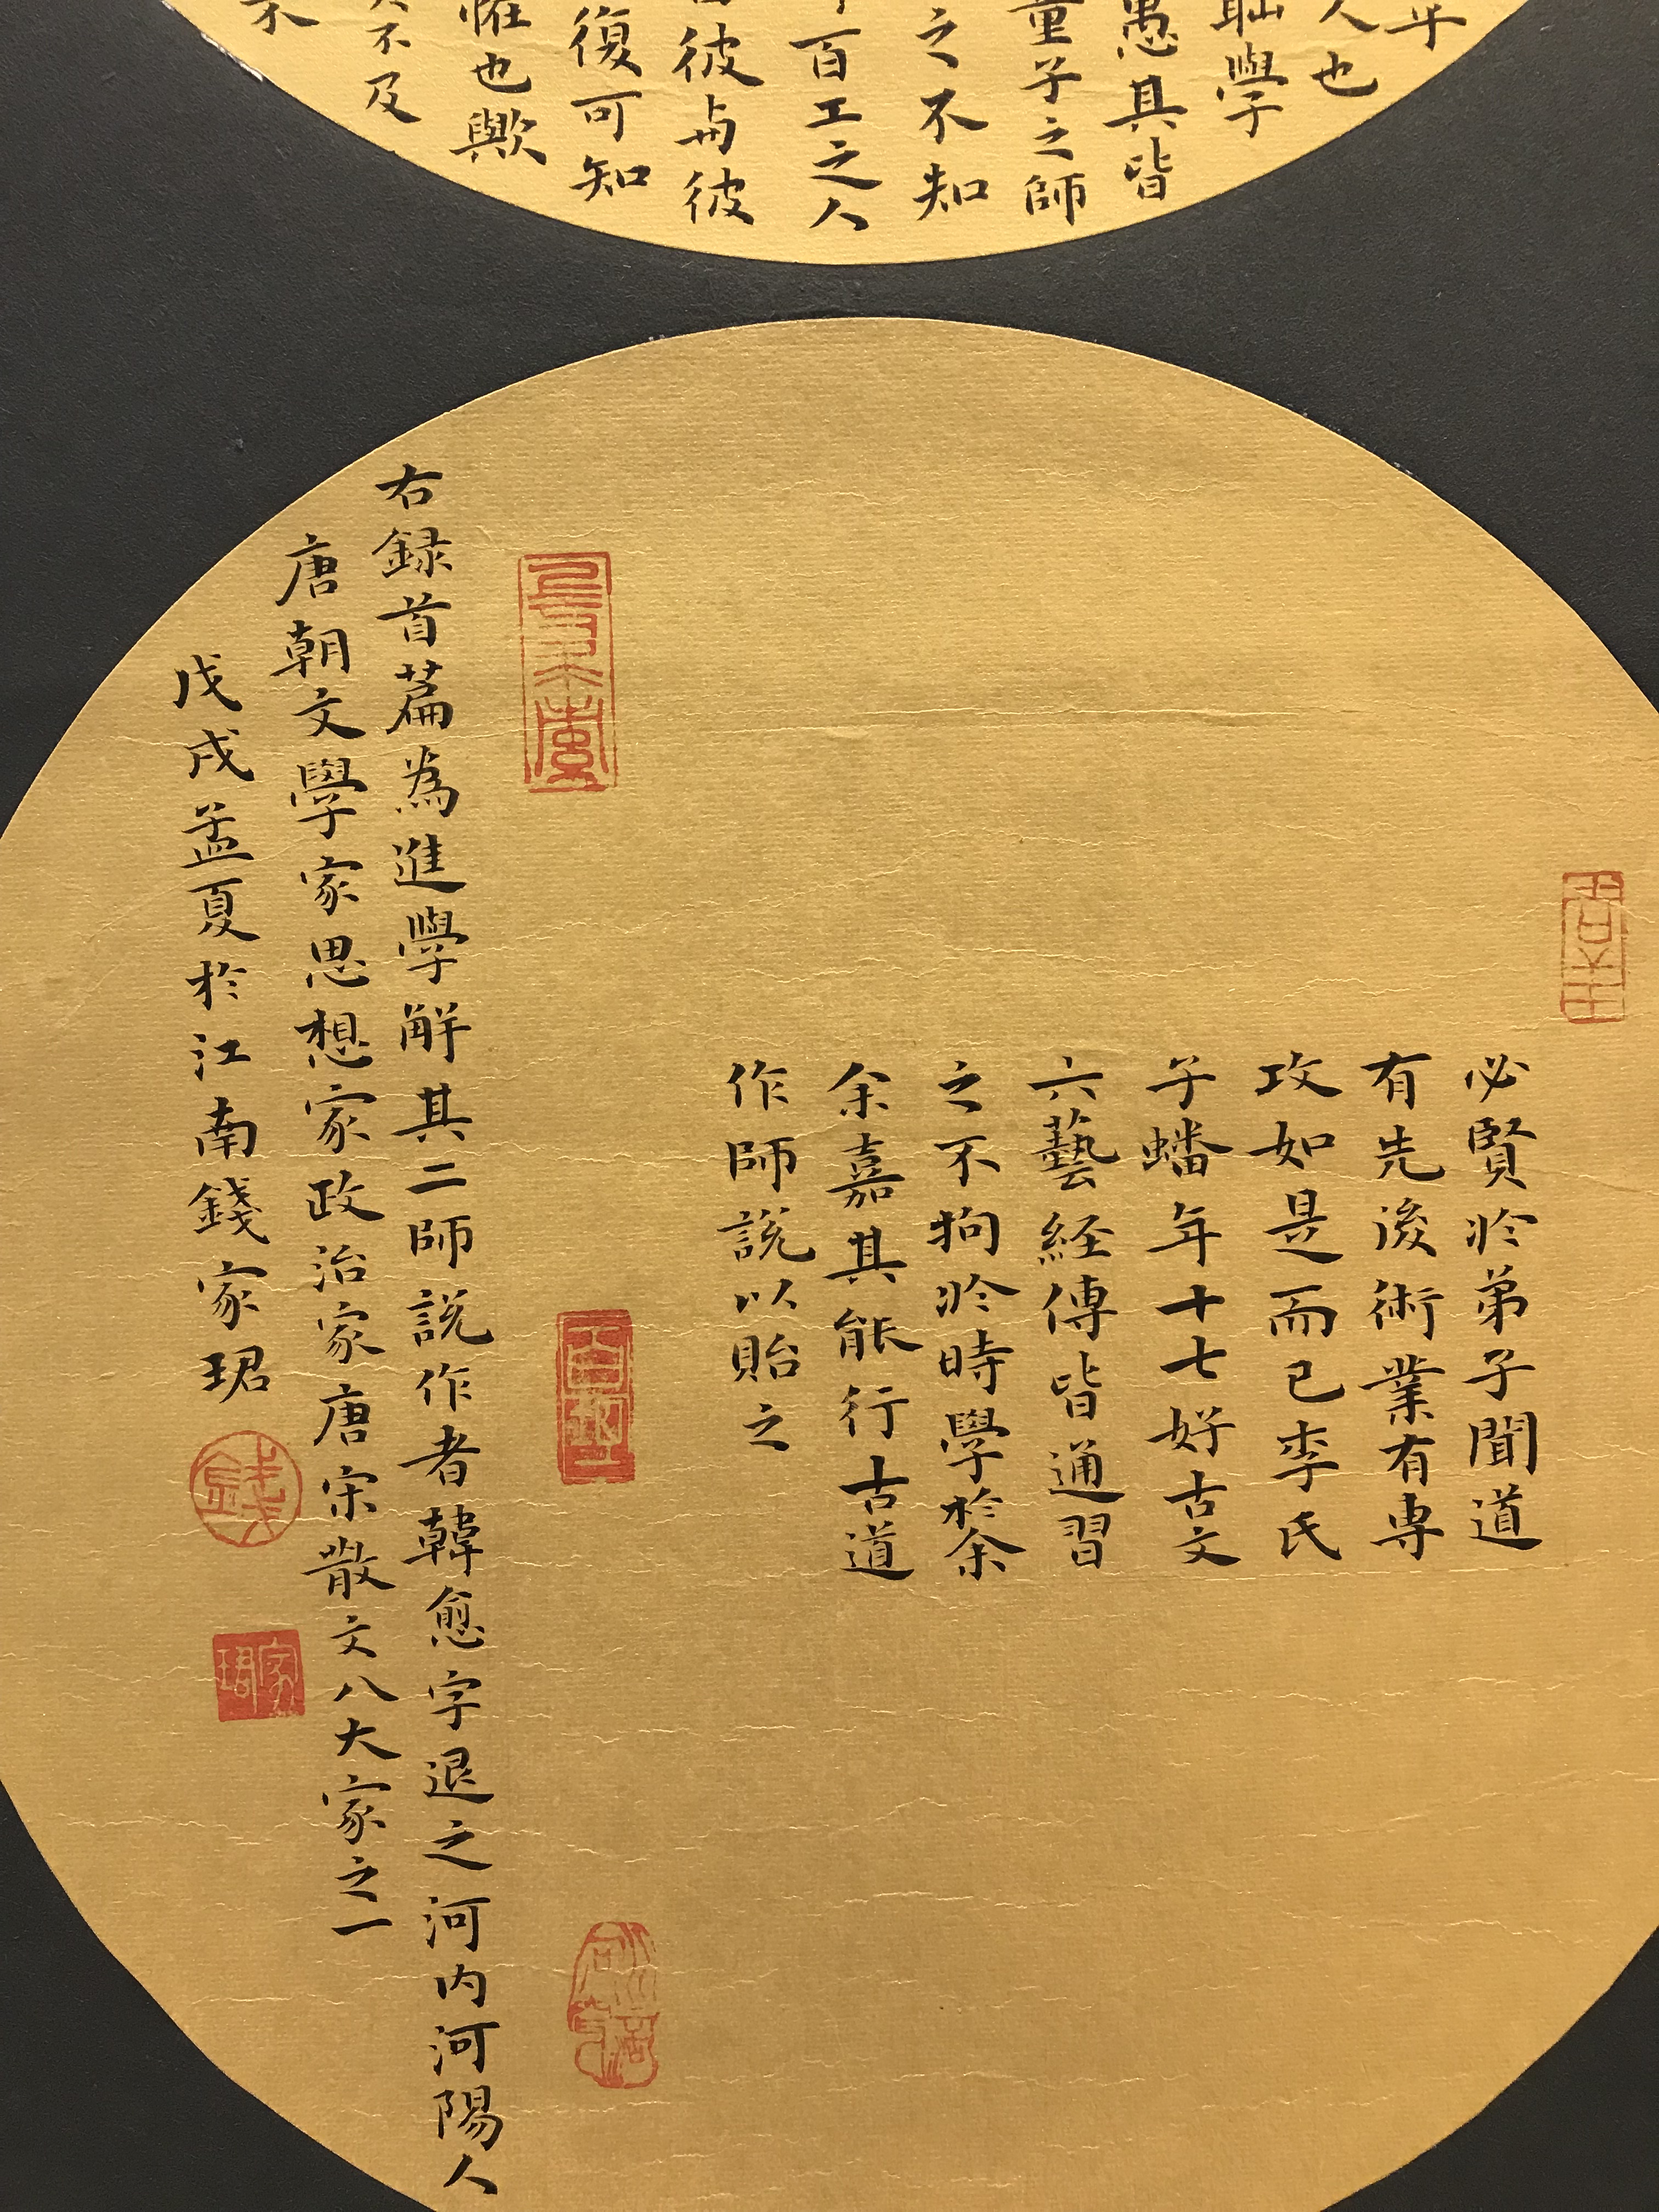 乎
人也
恥學
愚其皆
童子之師
之不知
百工之人
彼與彼
復可知
怪也歟
不及
不
必賢於弟子聞道
有先後術業有專
攻如是而已李氏
子蟠年十七好古文
六藝経傳皆通習
之不拘於時學於余
余嘉其能行古道
作師說以貽之
右録首篇為進學解其二師說作者韓愈字退之河内河陽人
唐朝文學家思想家政治家唐宋散文八大家之一
戊戌孟夏於江南錢家珺
錢
家珺